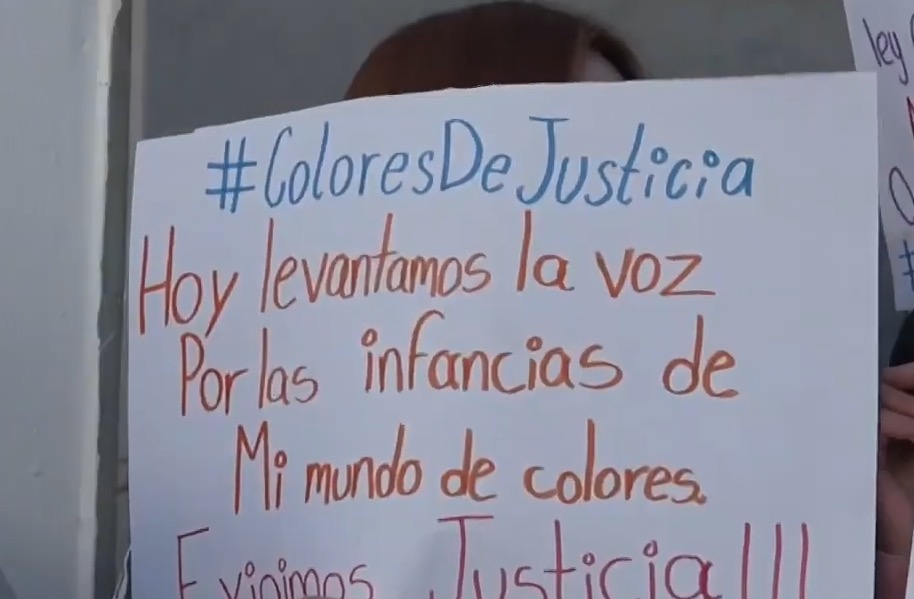 #ColoresDeJusticia
Hoy levantamos la voz
Por las infancias de
Mi mundo de colores.
Exigimos Justicia!!!
ley